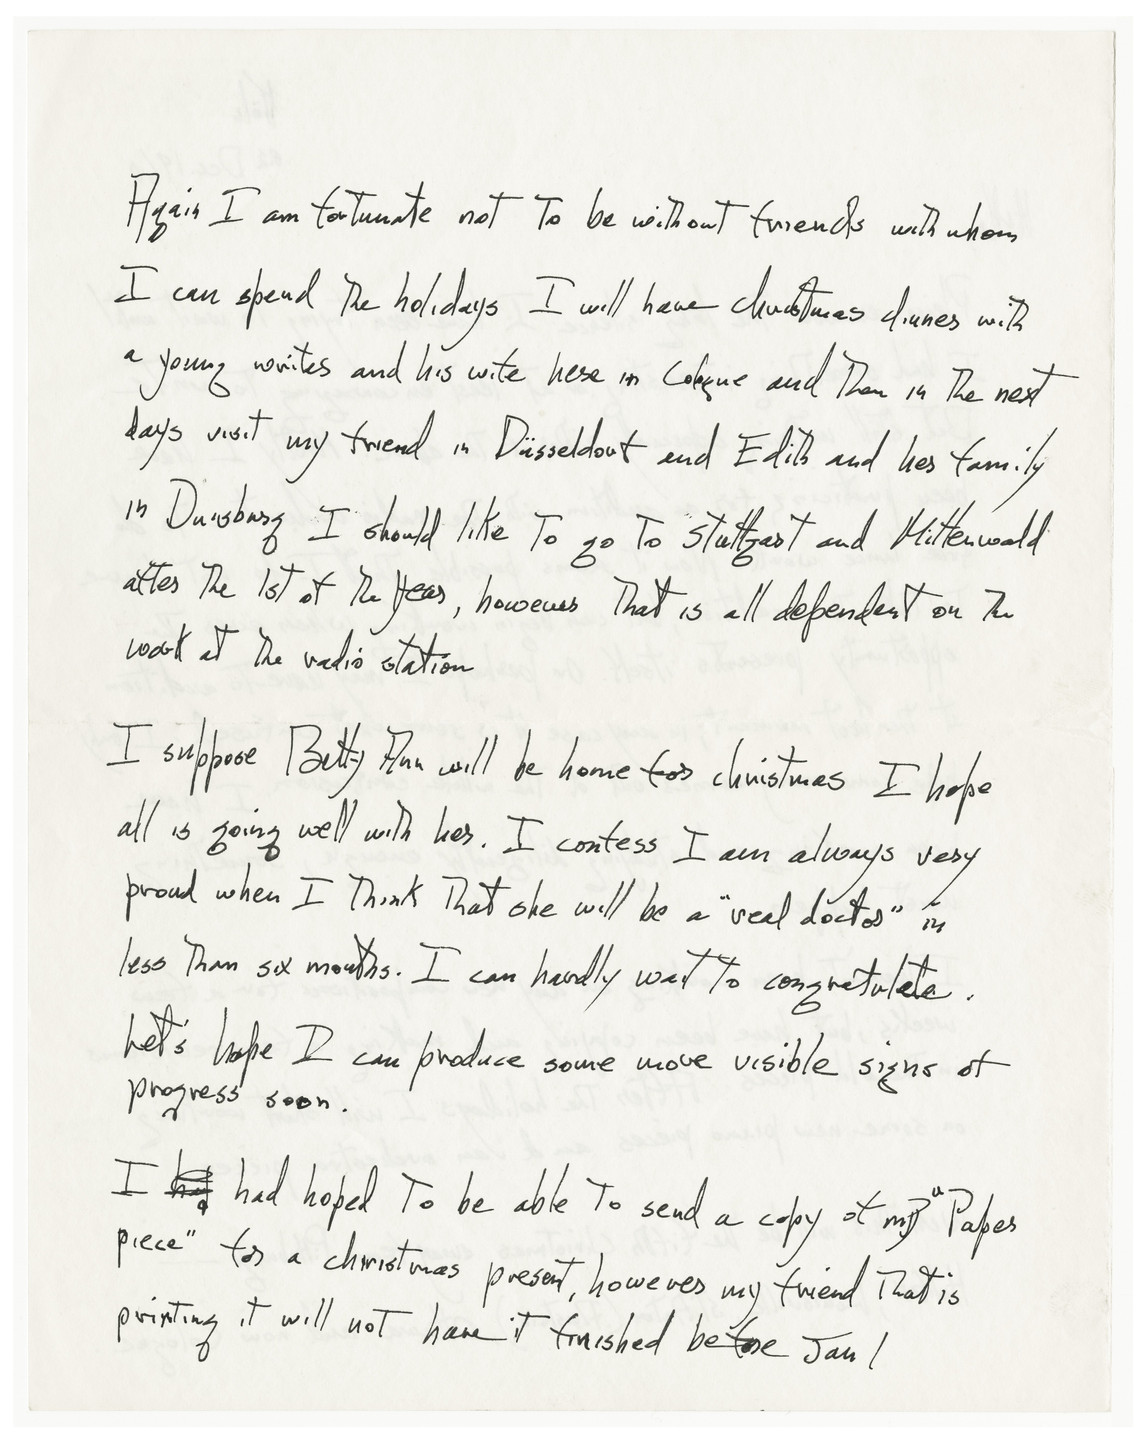 Again I am fortunate not to be without friends with whom
I can spend the holidays I will have christmas dinner with
a young writer and his wife here in Cologne and then in the next
days visit my friend in Düsseldorf and Edith and her family
in Duisburg I should like to go to Stuttgart and Mittenwald
after the 1st of the year, however that is all dependent on the
work at the radio station
I suppose Betty Ann will be home for christmas I hope
all is going well with her. I confess I am always very
proud when I think that she will be a "real doctor" in
less than six months. I can hardly wait to congratulate.
Let's hope I can produce some more visible signs of
progress soon.
I had hoped to be able to send a copy of my "Paper
piece" for a christmas present, however my friend that is
printing it will not have it finished before Jan 1